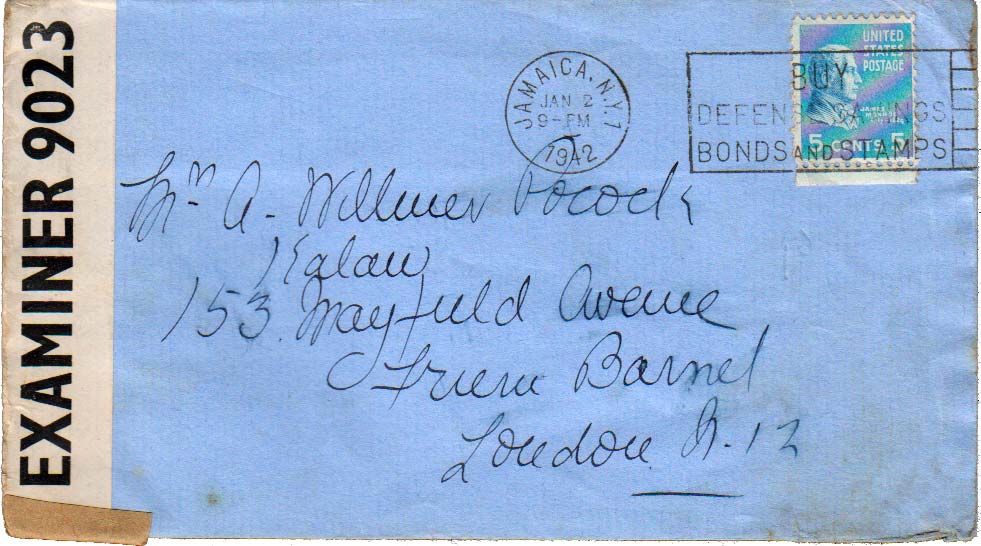 EXAMINER 9023
JAMAICA, N.Y. 1
JAN 2
9-PM
1942
BUY
DEFENSE SAVINGS
BONDS AND STAMPS
UNITED
STATES
POSTAGE
JAMES
MONROE
5 CENTS 5
Mr A. Willmer Pocock
Kalaw
153 Mayfield Avenue
Friern Barnet
London N. 12